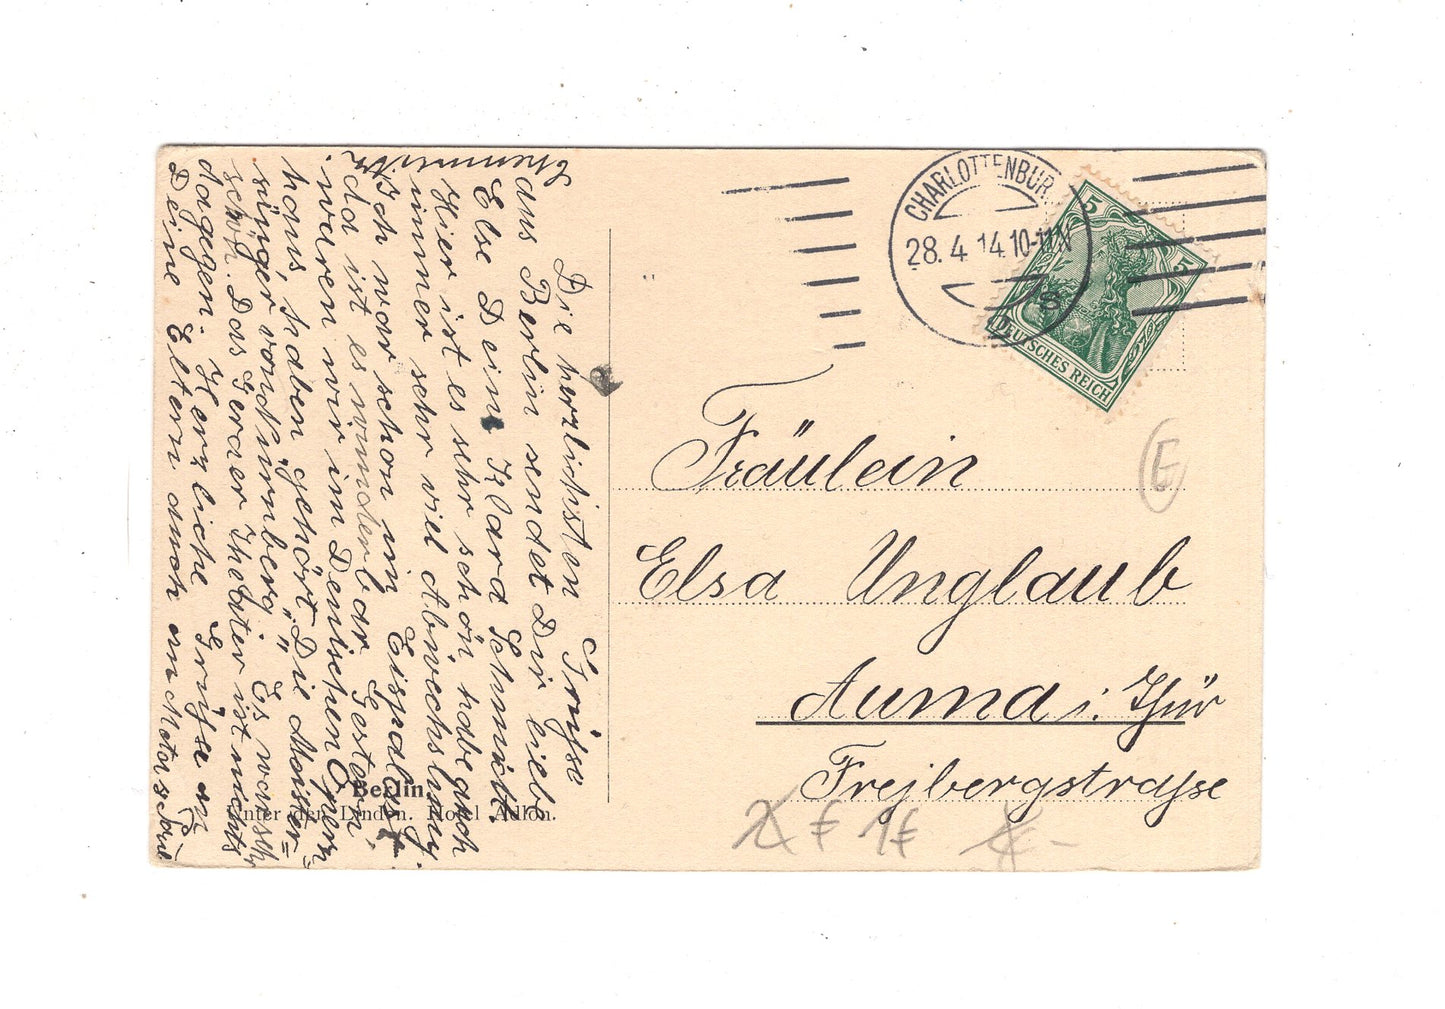 Die herzlichsten Grüsse
aus Berlin sendet Dir liebe
Else Deine Klara Schmidt.
Hier ist es sehr schön habe auch
immer sehr viel Abwechslung.
Ich war schon im Eispalast
da ist es wunderbar. Gestern
waren wir im Deutschen Opern=
haus, haben gehört „Die Meister=
singer von Nürnberg". Es war sehr
schön. Das Geraer Theater ist nichts
dagegen. Herzliche Grüsse an
Deine Eltern auch an
CHARLOTTENBURG
28.4.14.10-11N
8
5
5
DEUTSCHES REICH
E
Fräulein
Elsa Unglaub
Auma i. Thür
Freibergstrasse
Berlin.
Unter den Linden. Hotel Adlon.